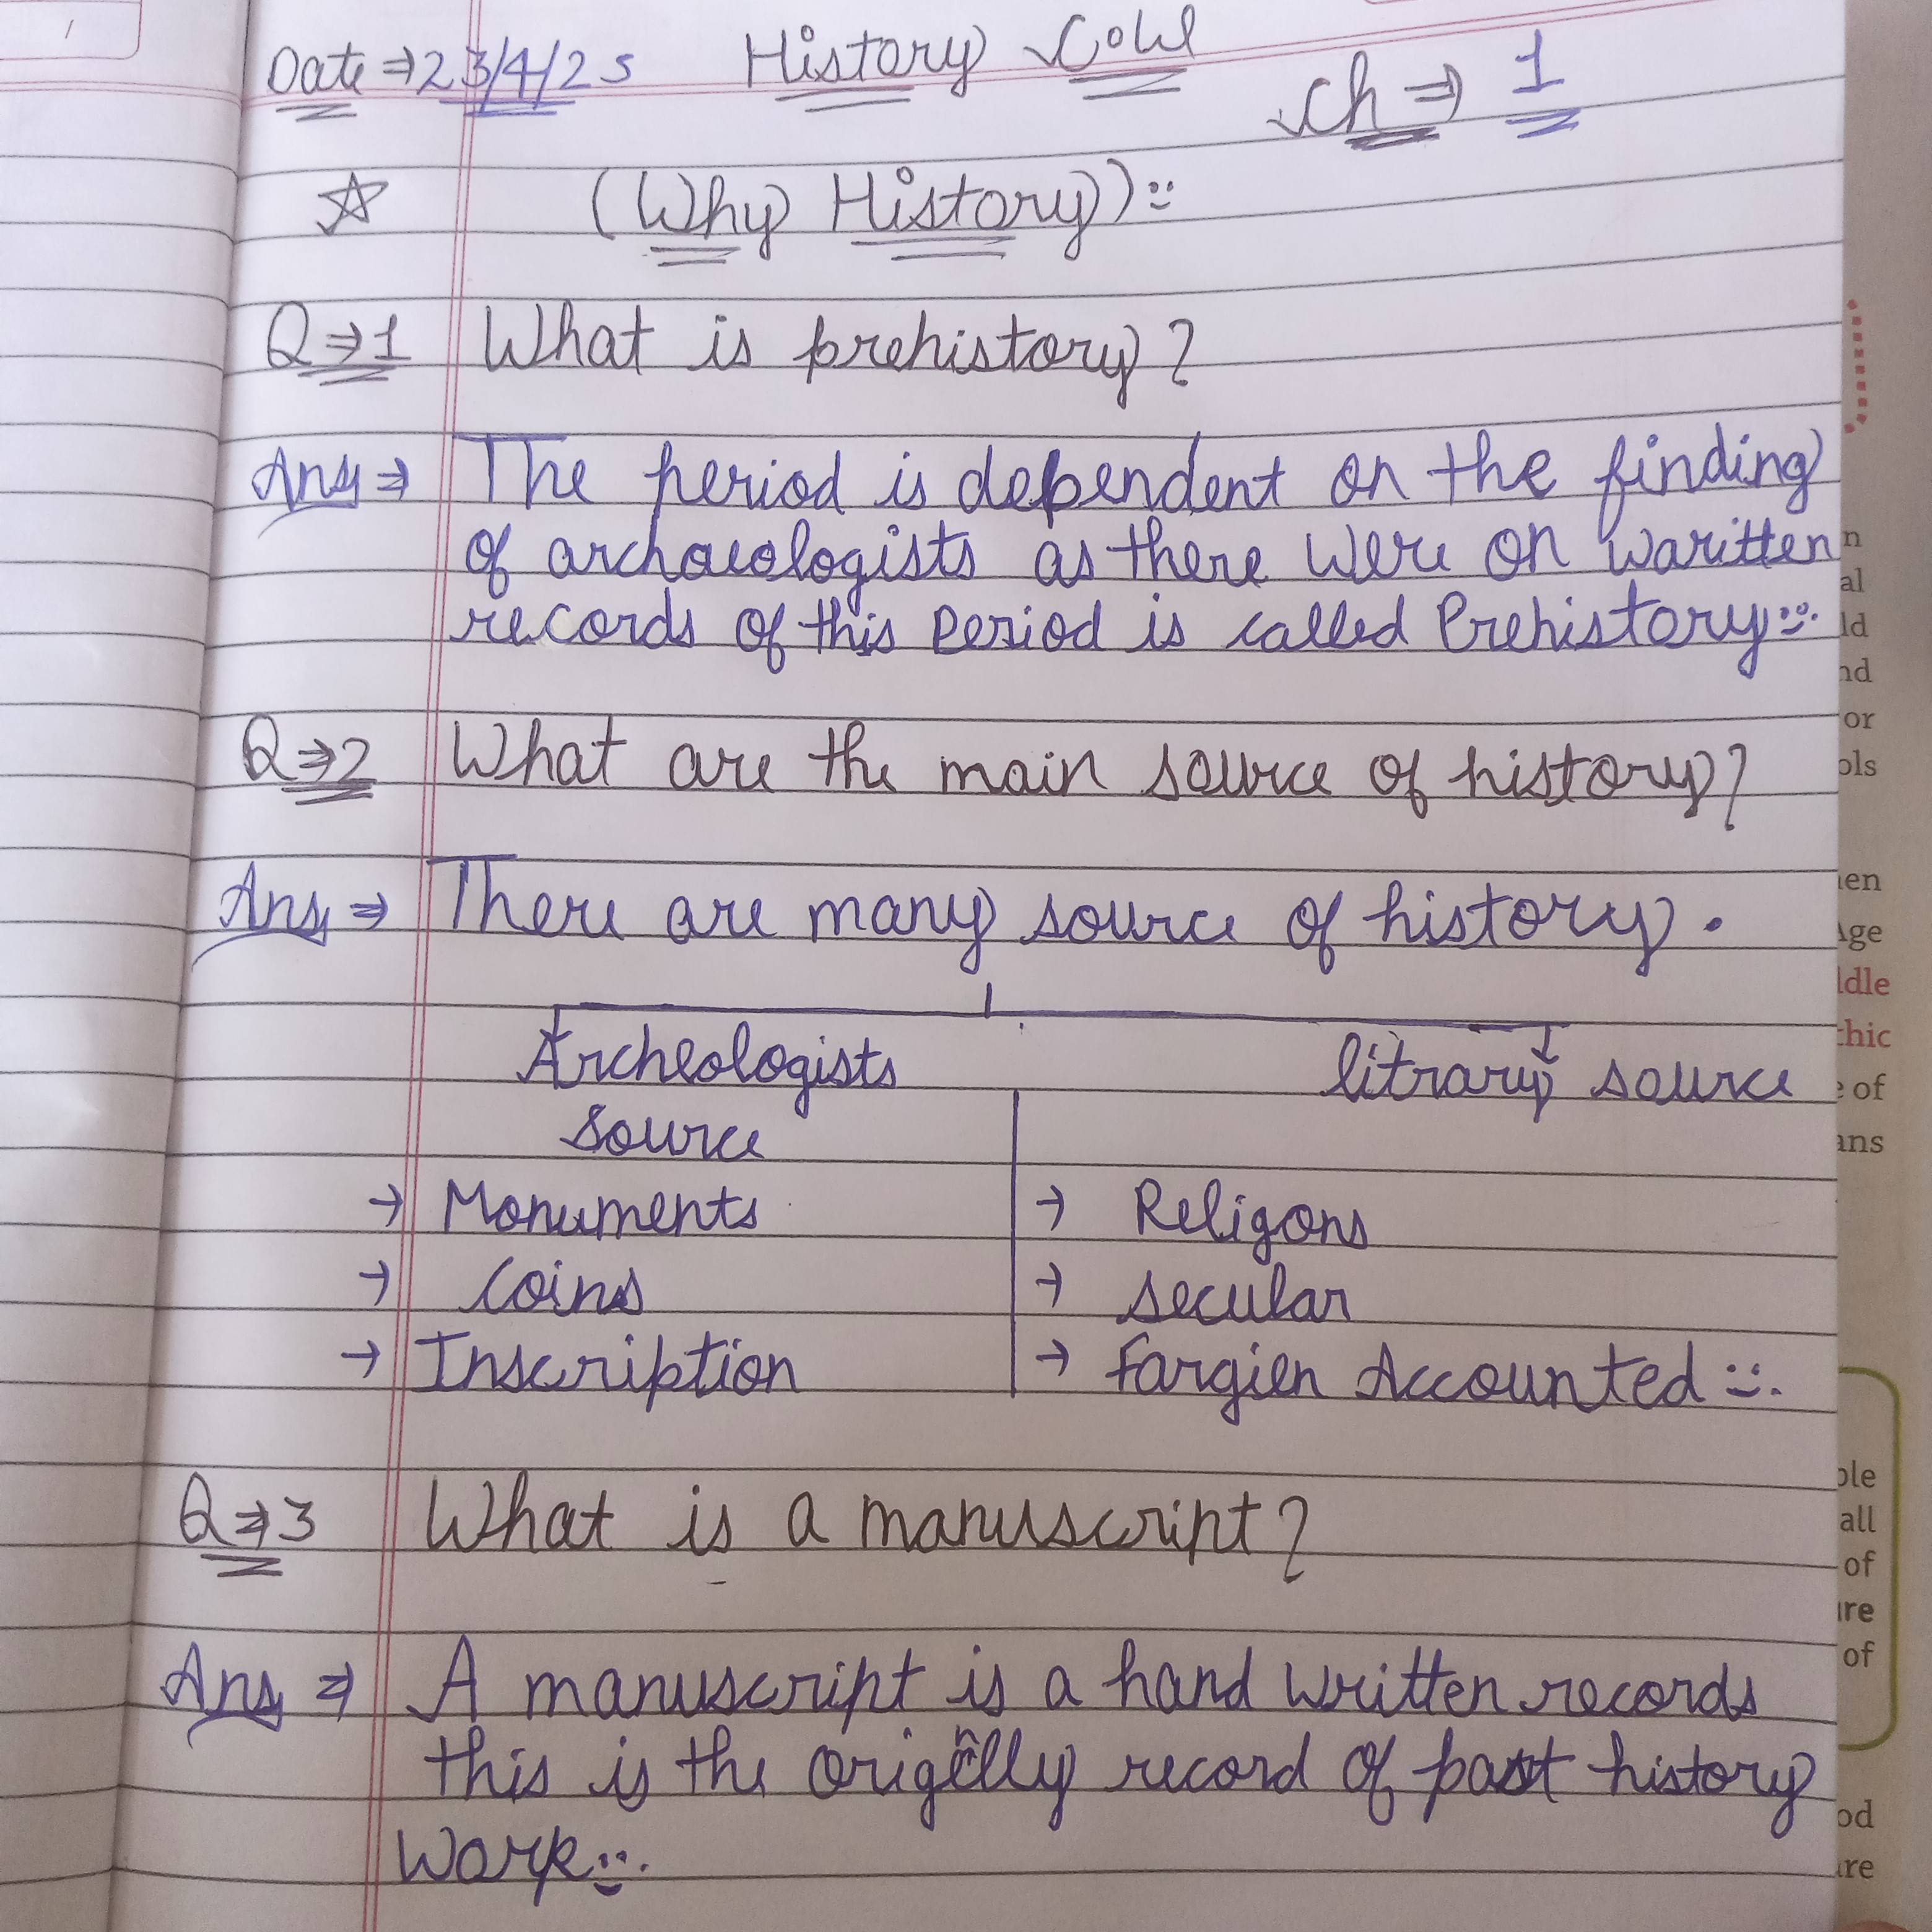 Date ⇒ 23/4/25 History
Ch ⇒ 1
(Why History):
Q⇒1 What is prehistory?
Ans ⇒ The period is dependent on the finding
of archaeologists as there were on waritten
records of this period is called Prehistory
Q⇒2 What are the main source of history?
Ans ⇒ There are many source of history.
Archeologists
source
litrary source
→ Monuments
→ Coins
→ Inscription
→ Religons
→ secular
→ Fargien Accounted
Q⇒3 What is a manuscript?
Ans ⇒ A manuscript is a hand written records
this is the record of past history
Work
n
al
ld
nd
or
ols
en
Age
ddle
thic
e of
ans
ple
all
of
ure
of
od
are